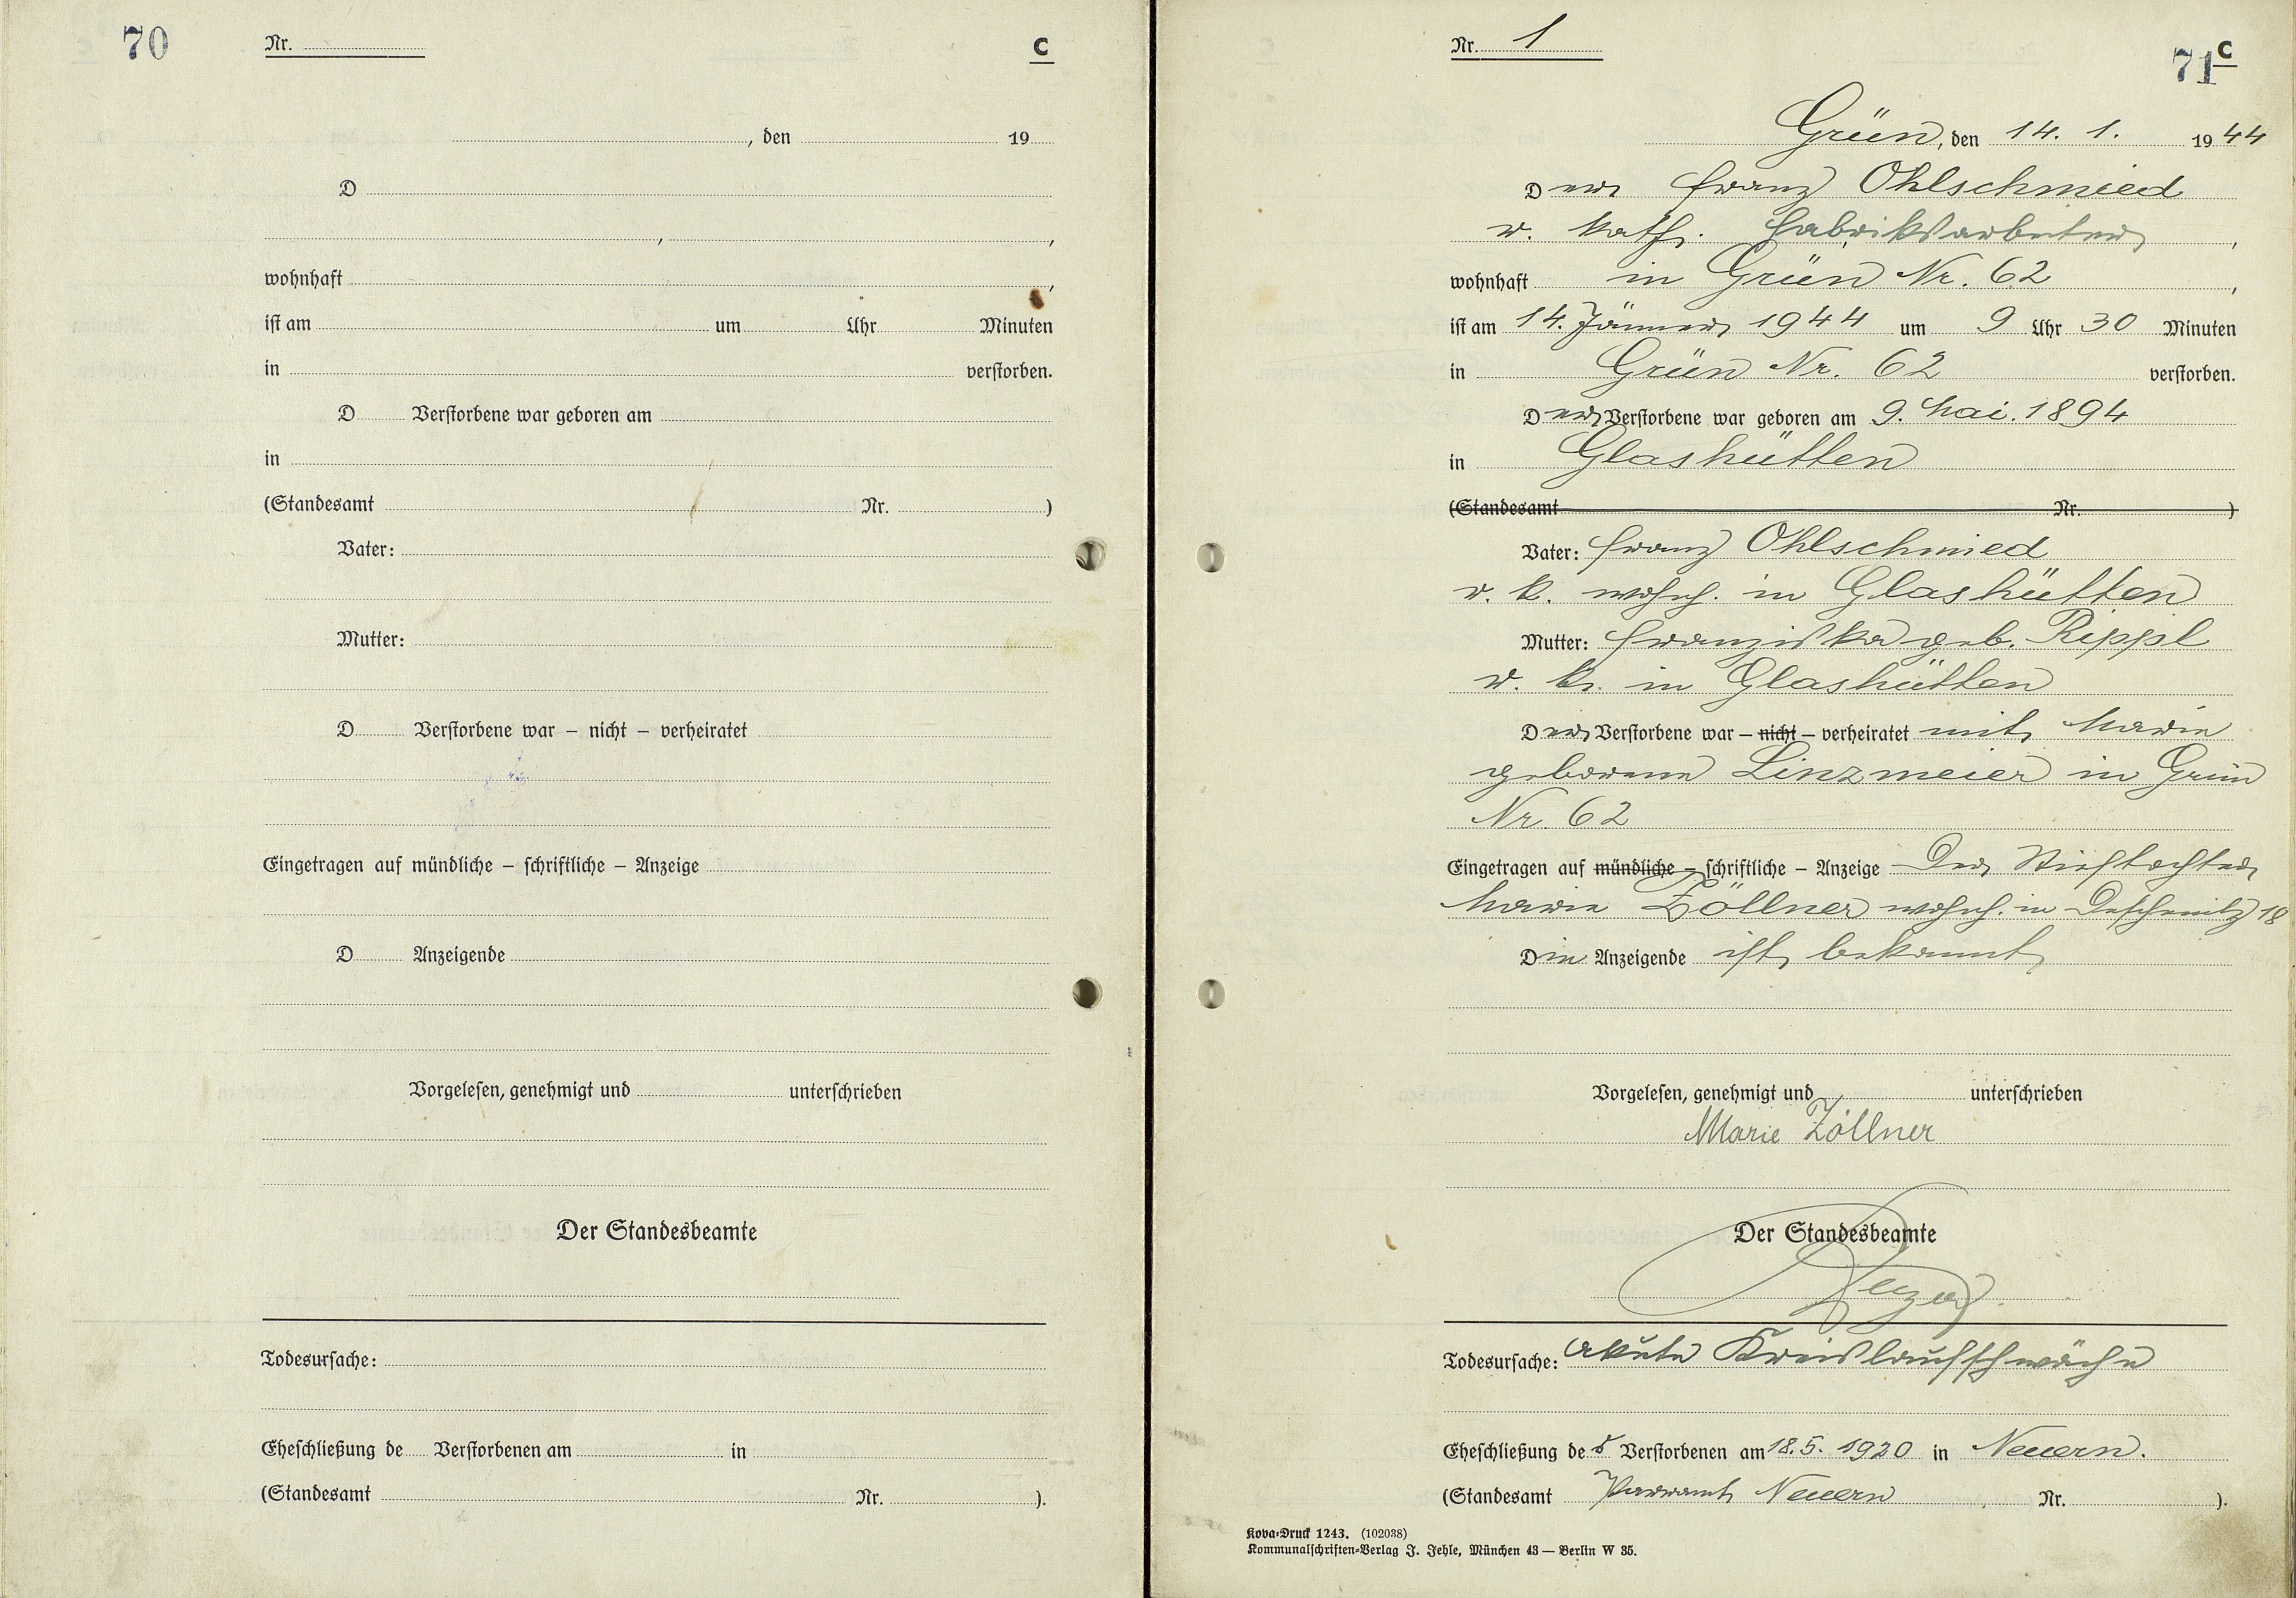 70
Nr.
C
, den 19
D
, ,
wohnhaft ,
ist am um Uhr Minuten
in verstorben.
D Verstorbene war geboren am
in
(Standesamt Nr. )
Vater:
Mutter:
D Verstorbene war – nicht – verheiratet
Eingetragen auf mündliche – schriftliche – Anzeige
D Anzeigende
Vorgelesen, genehmigt und unterschrieben
Der Standesbeamte
Todesursache:
Eheschließung de Verstorbenen am in
(Standesamt Nr. ).
Nr. 1
71 C
Grün, den 14. 1. 1944
Der Franz Ohlschmied
r. kath. Fabriksarbeiter ,
wohnhaft in Grün Nr. 62 ,
ist am 14. Jänner 1944 um 9 Uhr 30 Minuten
in Grün Nr. 62 verstorben.
Der Verstorbene war geboren am 9. Mai. 1894
in Glashütten
(Standesamt Nr. )
Vater: Franz Ohlschmied
r. k. wohnh. in Glashütten
Mutter: Franziska geb. Rippl
r. k. in Glashütten
Der Verstorbene war – nicht – verheiratet mit Marie
geborene Linzmeier in Grün
Nr. 62
Eingetragen auf mündliche – schriftliche – Anzeige Der Stieftochter
Marie Zöllner wohnh. in Deschenitz 18
Die Anzeigende ist bekannt
Vorgelesen, genehmigt und unterschrieben
Marie Zöllner
Der Standesbeamte
Todesursache: akute Kreislaufschwäche
Eheschließung des Verstorbenen am 18. 5. 1920 in Neuern.
(Standesamt Pfarramt Neuern Nr. ).
Kova-Druck 1243. (102038)
Kommunalschriften-Verlag J. Jehle, München 43 — Berlin W 35.